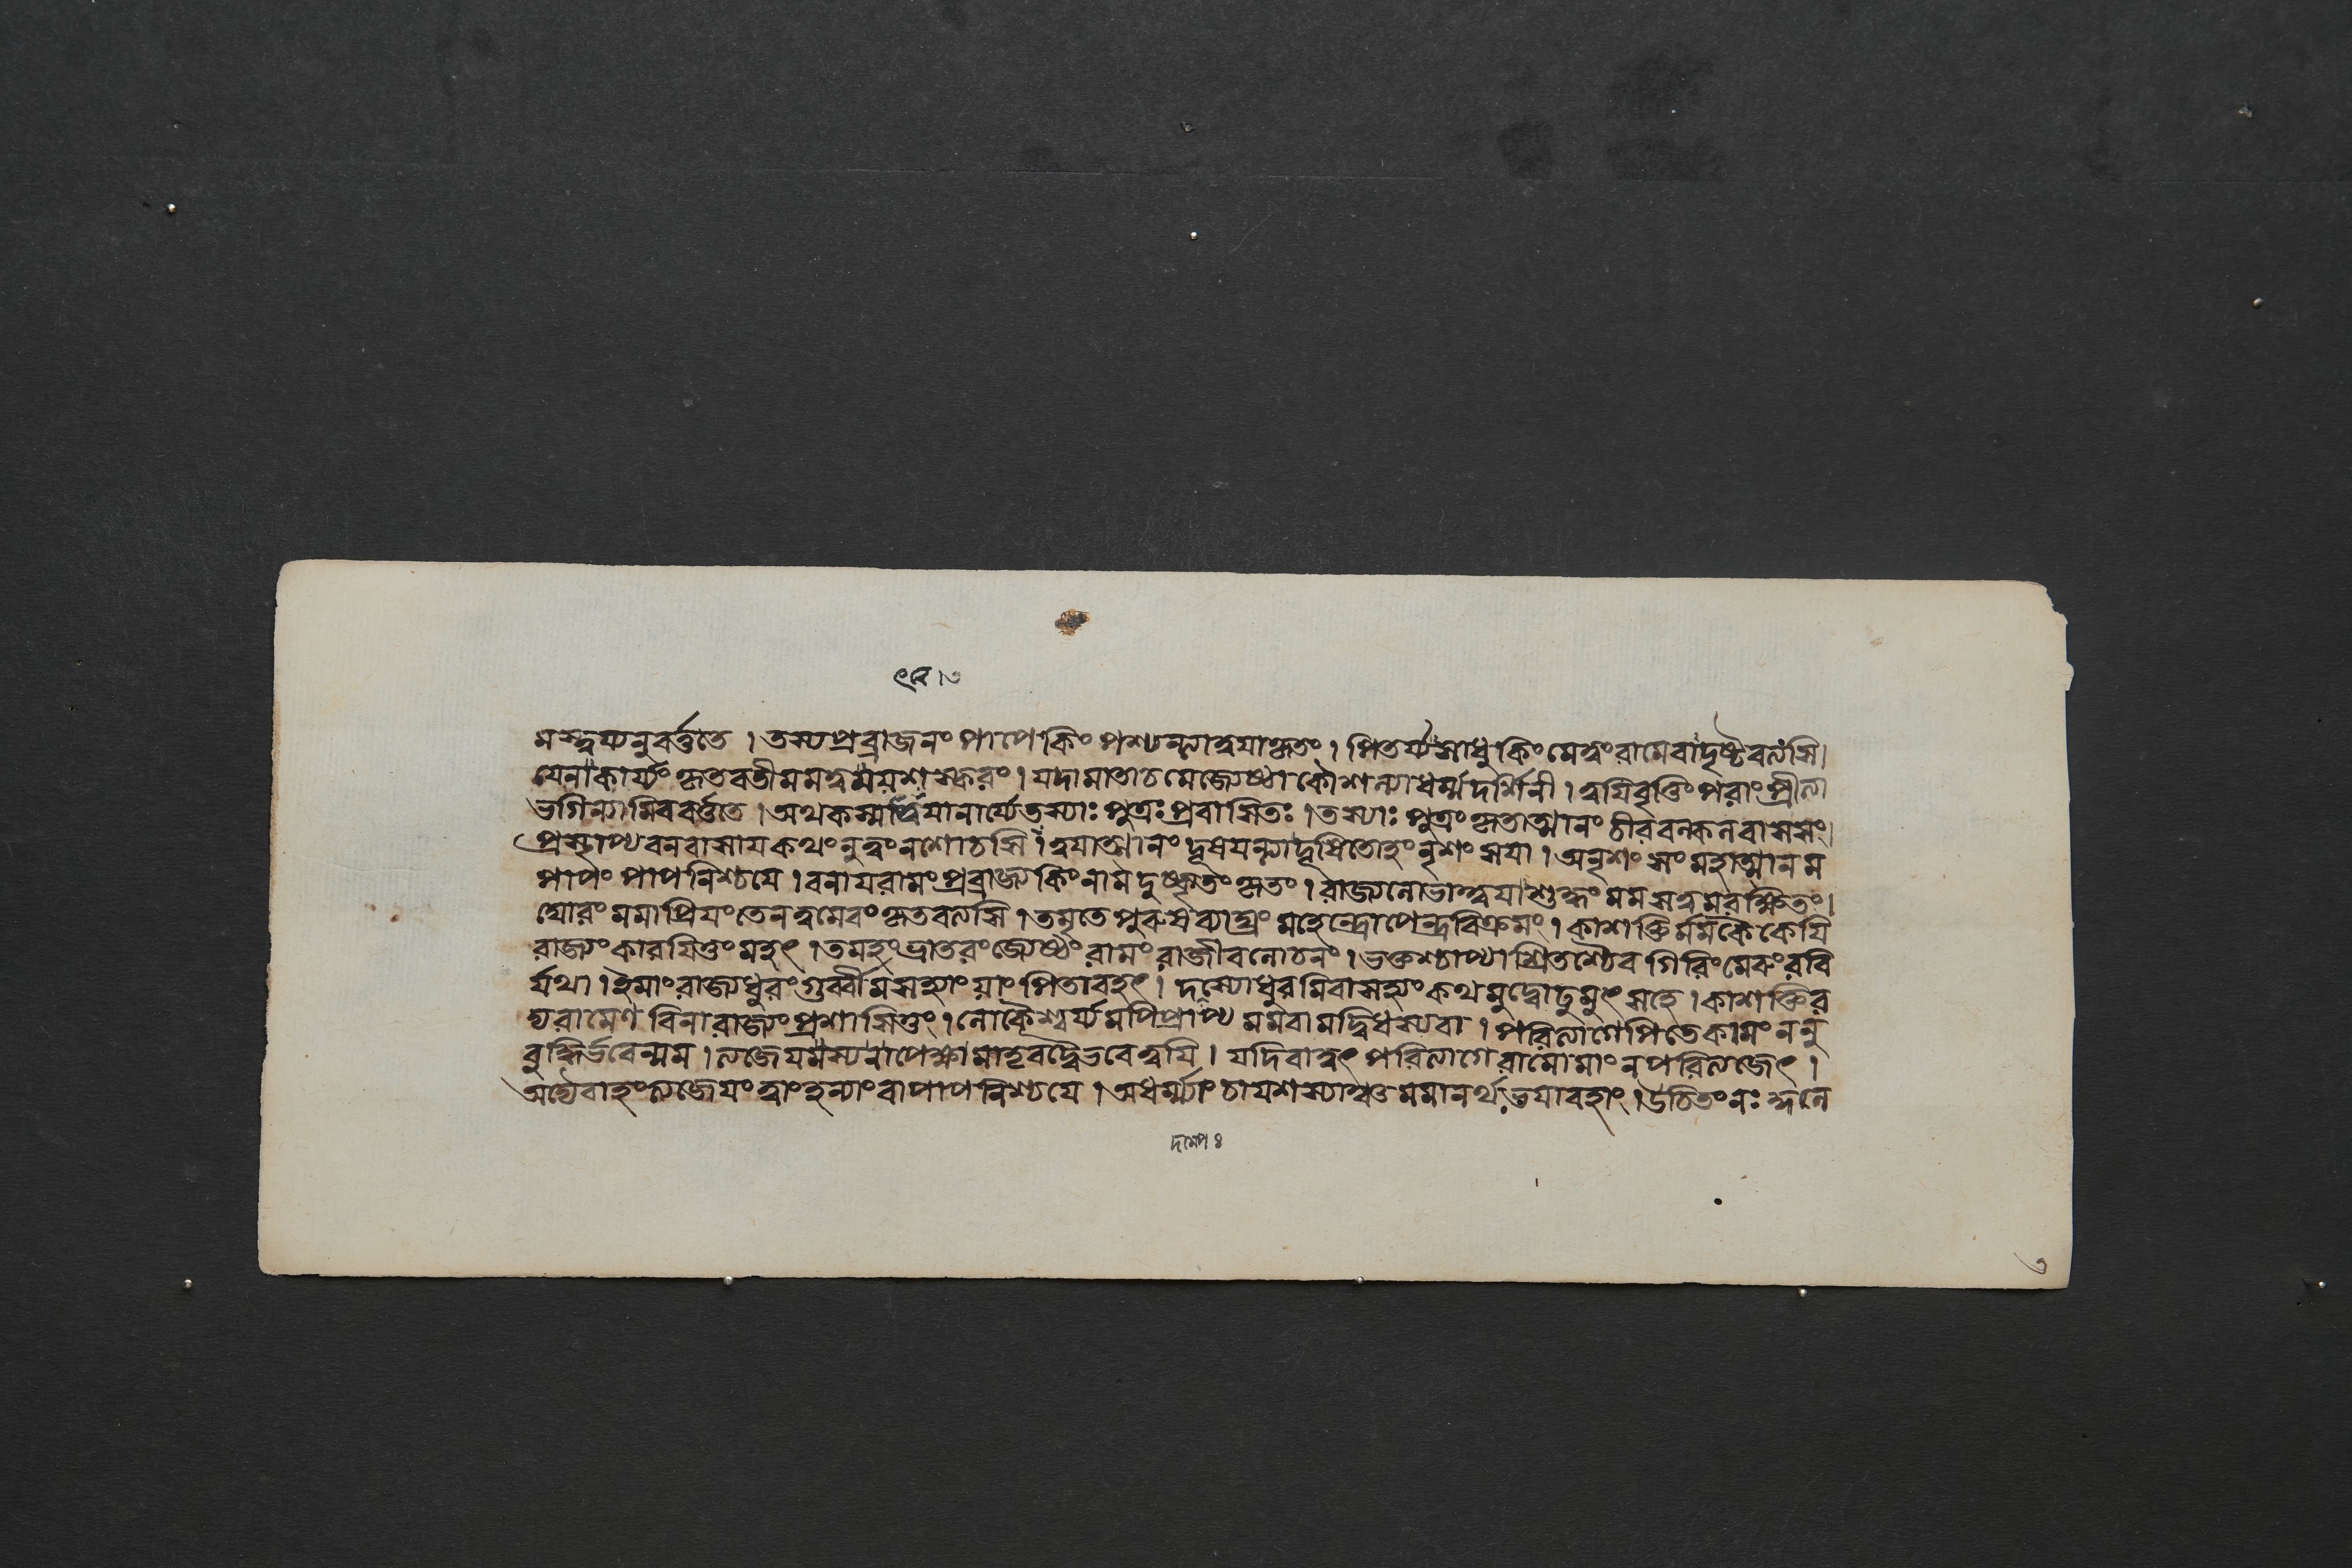 ৭ব ।৩
মস্ত্বয্যনুবর্ত্ততে । তস্যপ্রব্রাজনং পাপে কিং পশ্যন্ত্যাত্বয়াকৃতং । পিতর্য্যসাধু কিং মেত্বং রামেবাদৃষ্টবত্যসি।
যেনাকার্য্যং কৃতবতী মমত্বময়শস্করং । যদামাতাচমেজ্যেষ্ঠা কৌশল্যাধর্ম্মদর্শিনী । ত্বয়িবৃত্তিং পরাং প্রীত্যা
ভগিন্যামিববর্ত্ততে । অথকস্মাত্ত্বয়ানার্য্যেতস্যাঃ পুত্রঃ প্রবাসিতঃ । তস্যাঃ পুত্রং কৃতাত্মানং চীরবল্কলবাসসং।
প্রস্থাপ্য বনবাসায় কথং নুত্বং নশোচসি । ত্বয়াত্মানং দূষয়ন্ত্যাদূষিতোহং নৃশংসয়া । অনৃশংসং মহাত্মানম
পাপং পাপনিশ্চয়ে । বনায়রামং প্রব্রাজ্য কিং নাম দুষ্কৃতং কৃতং । রাজ্যলোভাত্ত্বয়া শুল্কং মমসত্বমরক্ষিতং।
ঘোরং মমাপ্রিয়ং তেনত্বমেবং কৃতবত্যসি । তমৃতে পুরুষব্যাঘ্রং মহেন্দ্রোপেন্দ্রবিক্রমং । কাশক্তির্মমকৈকেয়ি
রাজ্যং কারয়িতুং মহৎ । তমহং ভ্রাতরং জ্যেষ্ঠং রামং রাজীবলোচনং । ভক্তশ্চাপ্যাশ্রিতশ্চৈব গিরিং মেরুং রবি
র্যথা । ইমাং রাজ্যধুরং গুর্ব্বীমসহ্যাং য়াং পিতাবহৎ । দম্যোধুরমিবাসহ্যং কথমুদ্বোঢুমুৎসহে । কাশক্তির
দ্যরামেণ বিনা রাজ্যং প্রশাসিতুং । লোকৈশ্বর্য্যমপিপ্রাপ্য মমবামদ্বিধস্যবা । পরিত্যাগেপিতেকামং ননু
বুদ্ধির্ভবেন্মম । ত্যজেয়মস্যনাপেক্ষামাতৃবদ্বৈভবেত্ত্বয়ি । যদিবাত্বৎ পরিত্যাগে রামোমাং নপরিত্যজেৎ ।
অদ্যৈবাহং ত্যজেয়ং ত্বাং হন্যাং বাপাপনিশ্চয়ে । অধর্ম্ম্যাং চায়শস্যাঞ্চ মমানর্থভয়াবহাং । উচিতং নঃ কুলে
৩